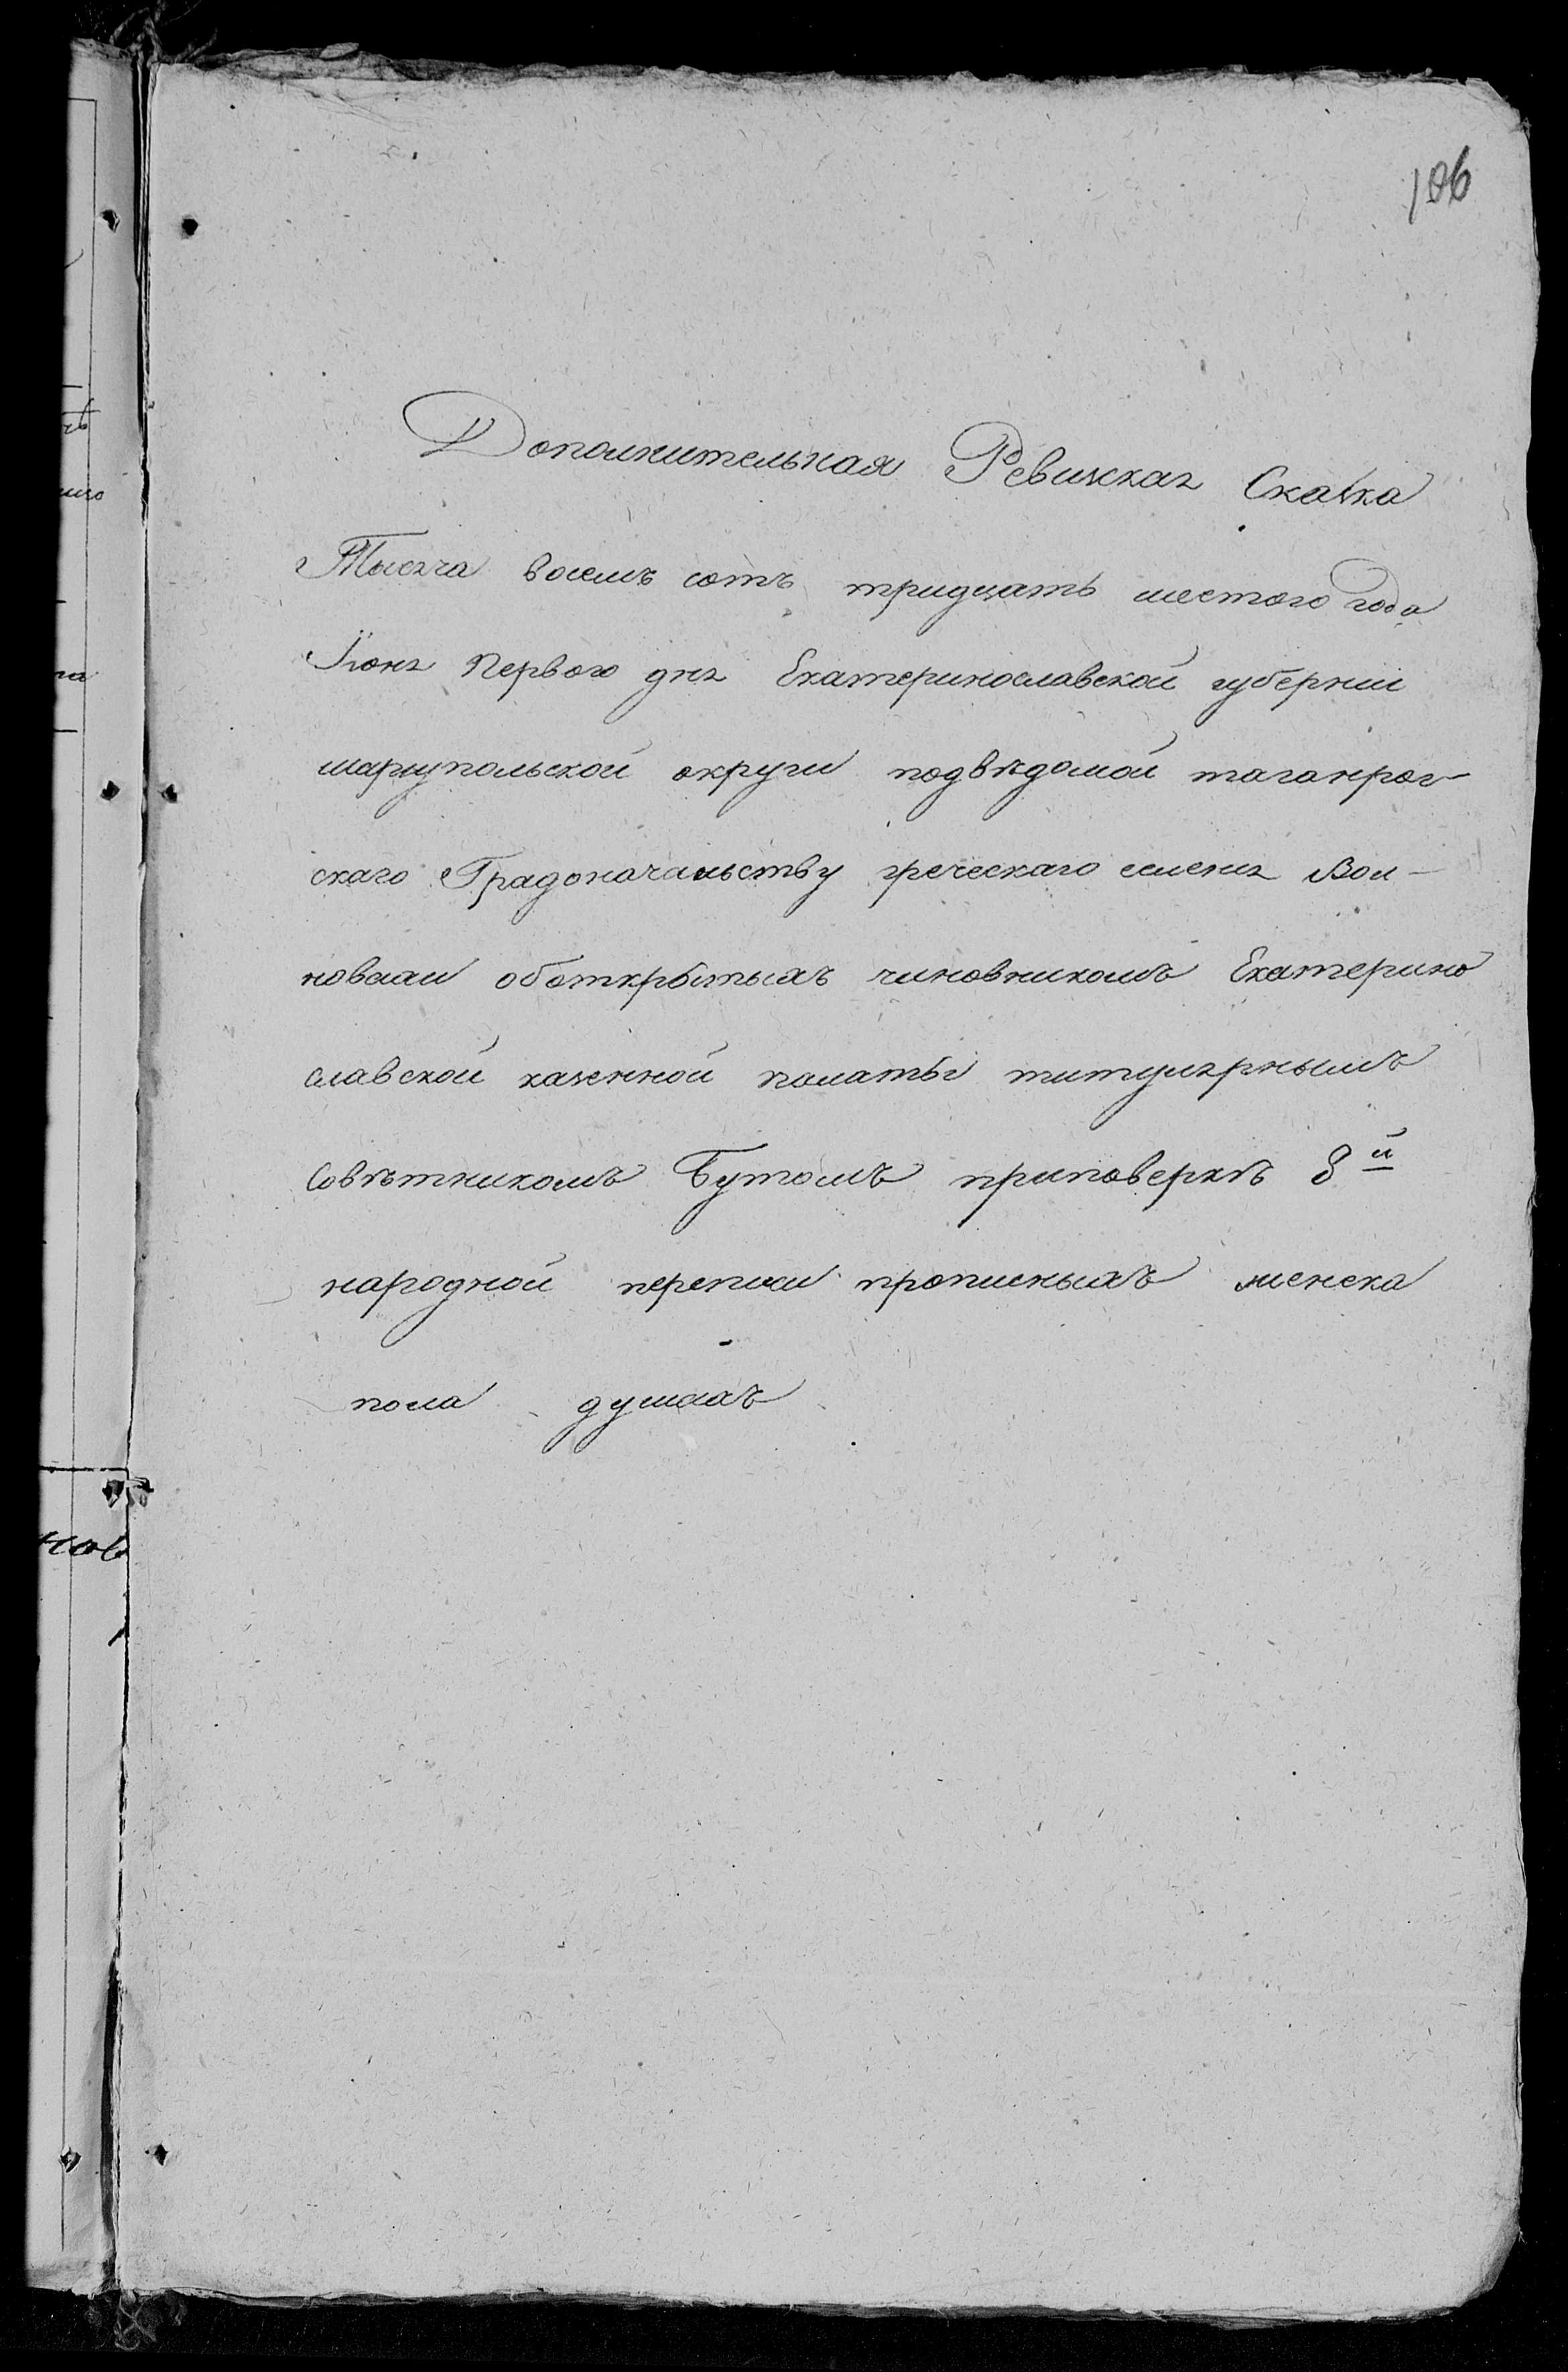 106
Дополнительная Ревизская Сказка
Тысяча восемь сотъ тридцать шестого года
Iюня Первого дня Екатеринославской губернии
мариупольской округи подвѣдомой таганрог-
скаго Градоначальству греческаго селения Вол-
новахи оботкрытыхъ чиновникомъ Екатерино
славской казенной полаты титулярнымъ
Совѣтникомъ Бутомъ приповеркѣ 8й
народной переписи прописныхъ женска
пола душахъ